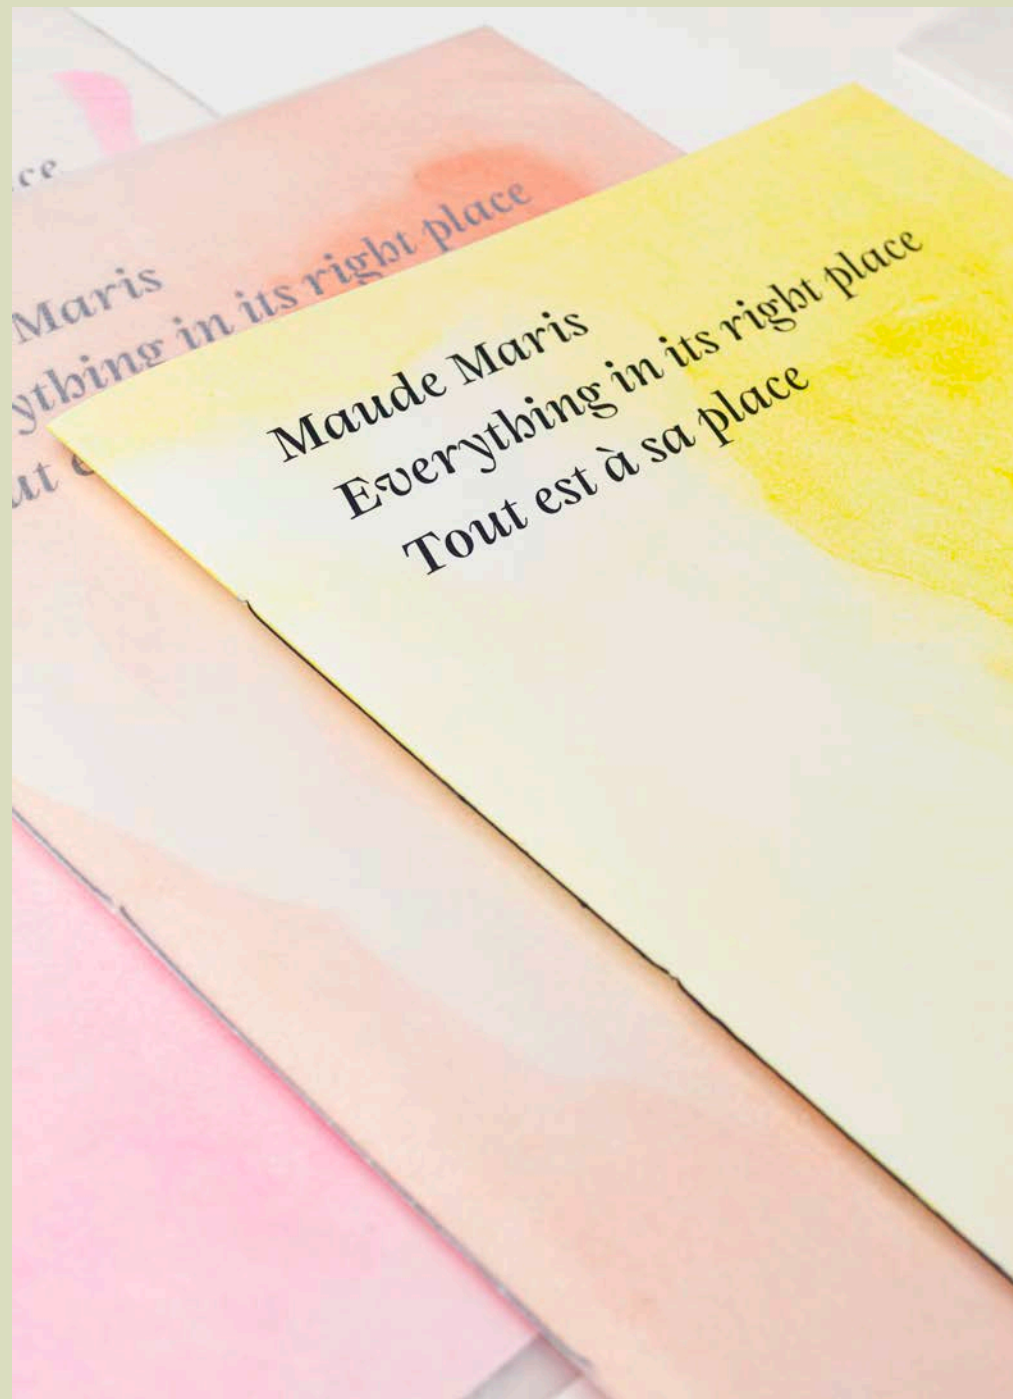 ce
Maris
ything in its right place
ut e
Maude Maris
Everything in its right place
Tout est à sa place